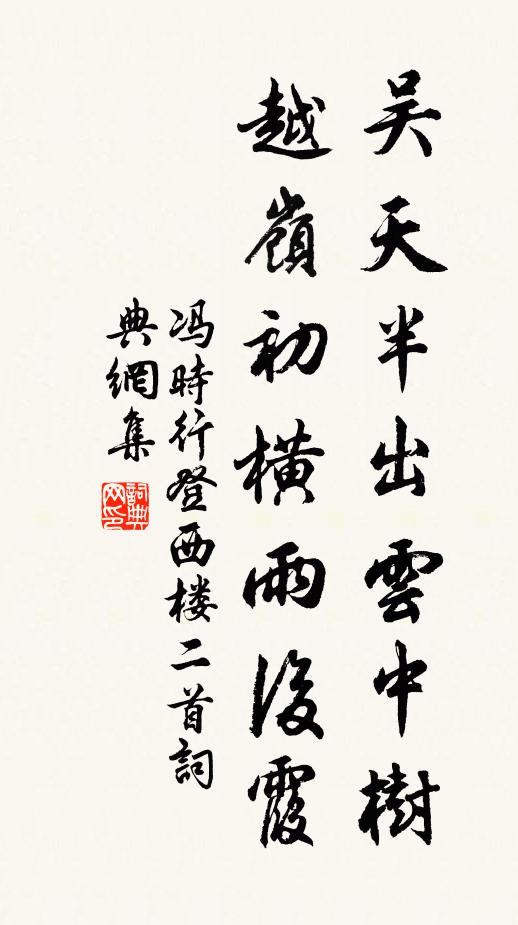 吴天半出雲中樹
越嶺初橫雨後霞
冯時行登西楼二首詞
典網集
詞典网印